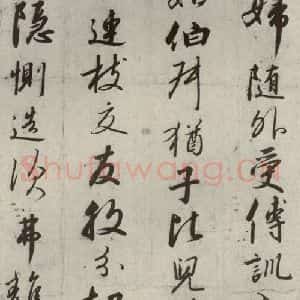 婦隨外受傅訓
姑伯叔猶子比兒
連枝交友投分切
隱惻造次弗離
Shufawang.Cn